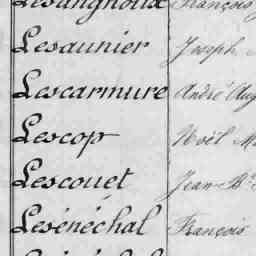 Lesaignoux François
Lesaunier Joseph
Lescarmure André Aug
Lescop Noël M
Lescouet Jean Bte
Lesénéchal François